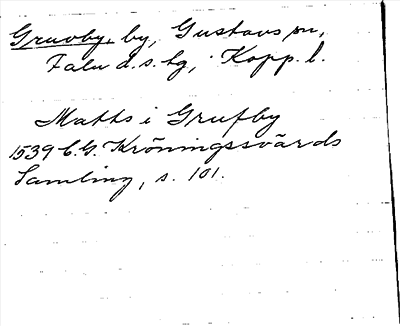 Gruvby, by, Gustavs sn,
Falu d.s. tg, Kopp. l.
Matts i Grufby
1539 C.G. Kröningssvärds
Samling, s. 101.